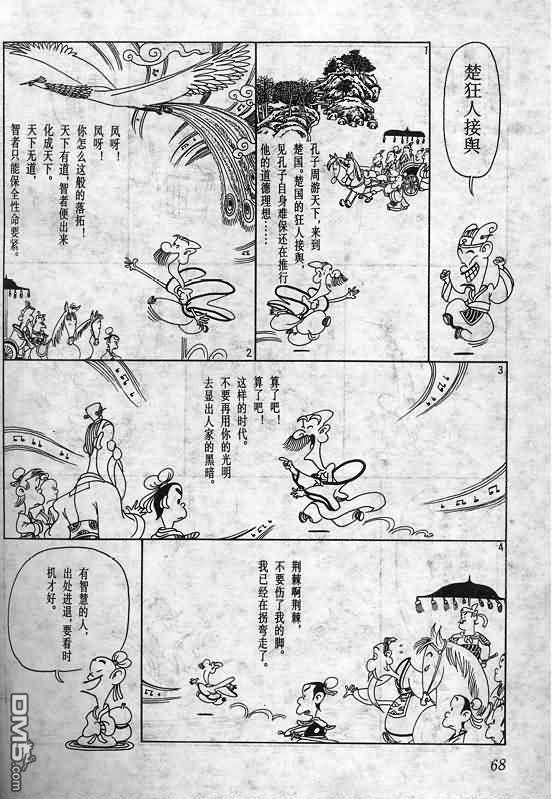 楚狂人接舆
1
孔子周游天下，来到
楚国。楚国的狂人接舆，
见孔子自身难保还在推行
他的道德理想……
凤呀！
凤呀！
你怎么这般的落拓！
天下有道，智者便出来
化成天下。
天下无道，
智者只能保全性命要紧。
2
3
算了吧！
算了吧！
这样的时代。
不要再用你的光明
去显出人家的黑暗。
4
荆棘啊荆棘，
不要伤了我的脚。
我已经在拐弯走了。
有智慧的人，
出处进退，要看时
机才好。
68
DM5.com